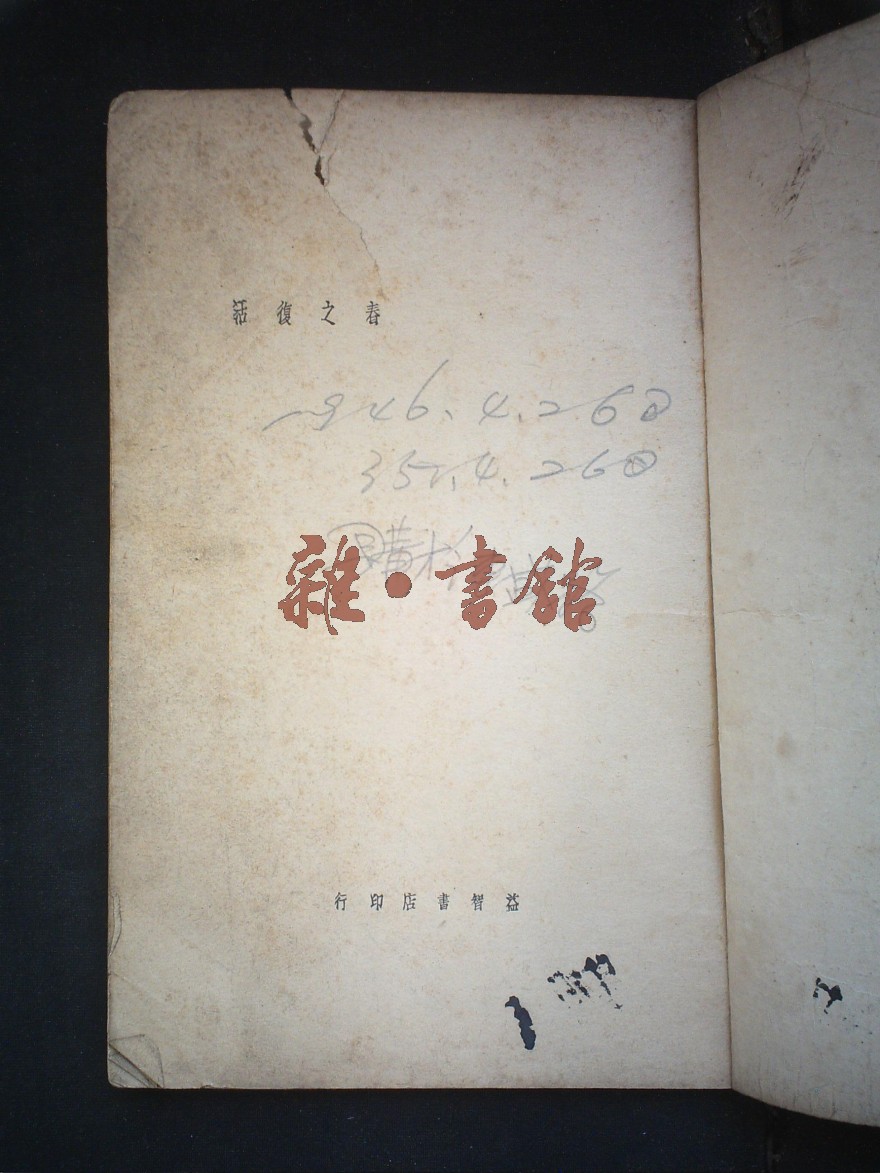 春之復活
1946.4.26日
35.4.26日
購於
雜·書館
益智書店印行